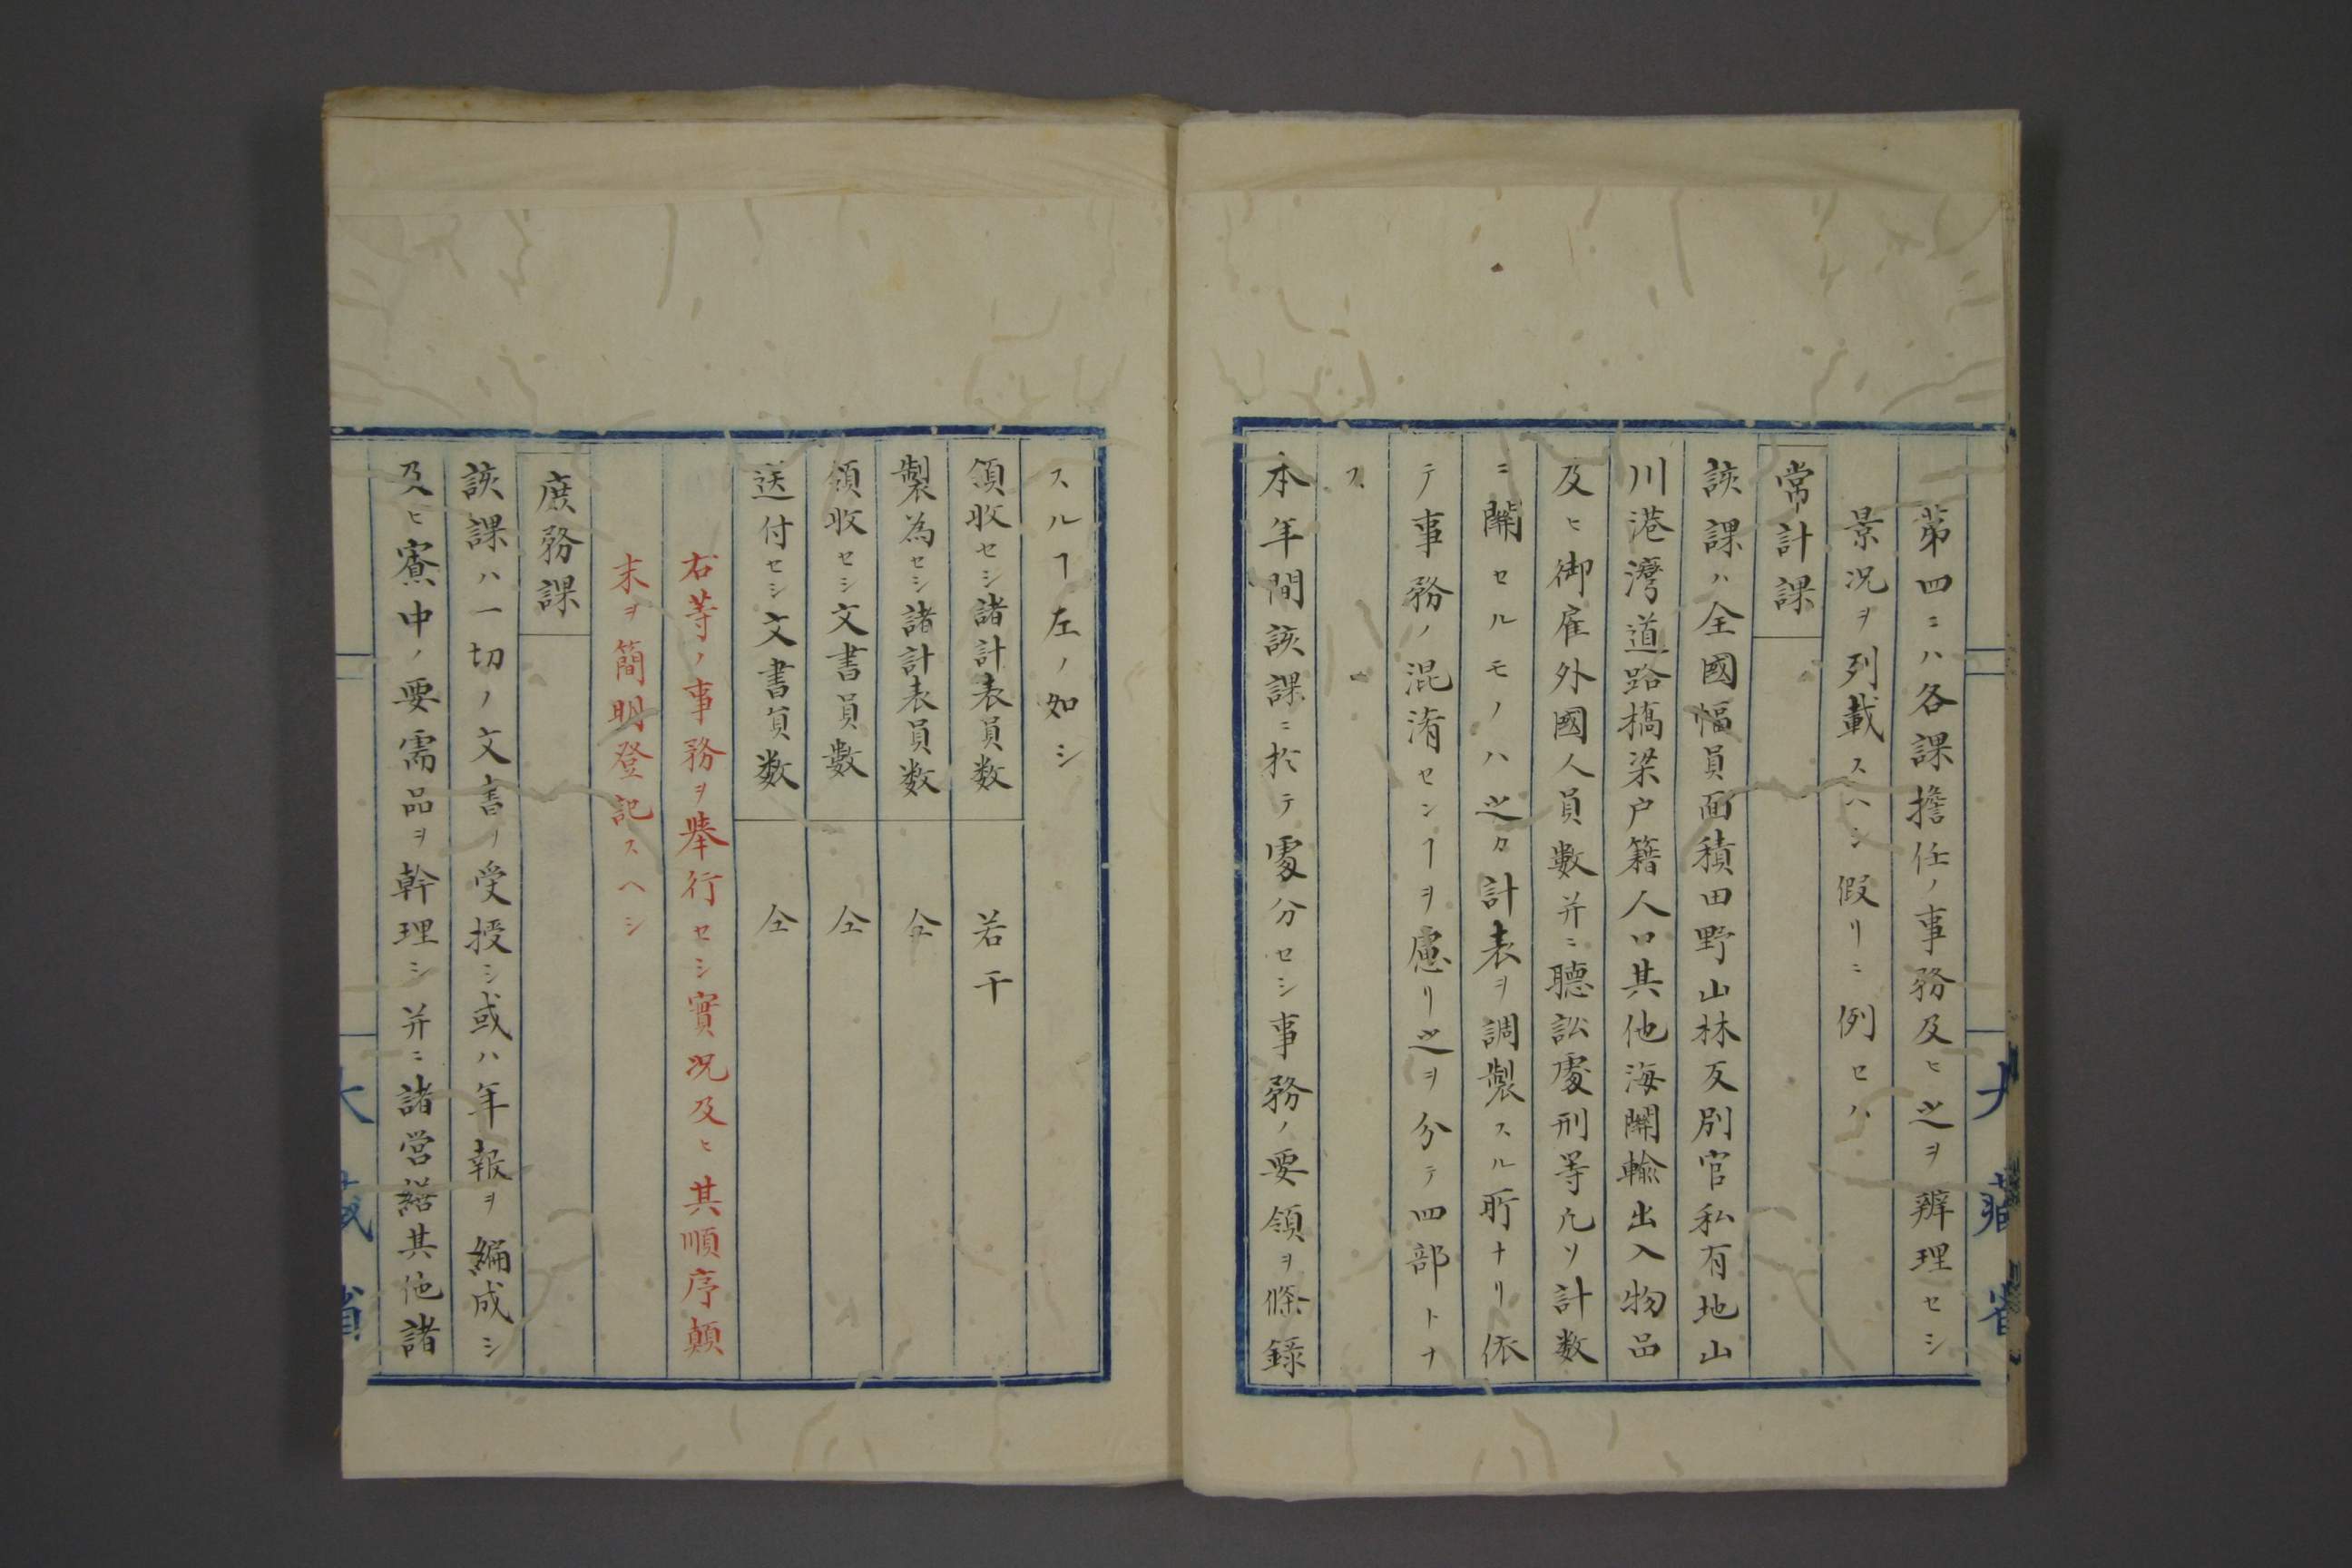 第四ニハ各課擔任ノ事務及ヒ之ヲ辨理セシ
景况ヲ列載スヘシ假リニ例セハ
常計課
該課ハ全國幅員面積田野山林反別官私有地山
川港灣道路橋梁户籍人口其他海關輸出入物品
及ヒ御雇外國人員數并ニ聽訟處刑等凢ソ計数
ニ關セルモノハ之カ計表ヲ調製スル所ナリ依
テ事務ノ混淆センヿヲ慮リ之ヲ分テ四部トナ
ス
本年間該課ニ於テ處分セシ事務ノ要領ヲ條錄
スルヿ左ノ如シ
領收セシ諸計表員数 若干
製為セシ諸計表員数 仝
領收セシ文書員數 仝
送付セシ文書員数 仝
右等ノ事務ヲ挙行セシ實况及ヒ其順序顛
末ヲ簡明登記スヘシ
庶務課
該課ハ一切ノ文書ノ受授シ或ハ年報ヲ編成シ
及ヒ寮中ノ要需品ヲ幹理シ并ニ諸営繕其他諸
大藏省
大藏省